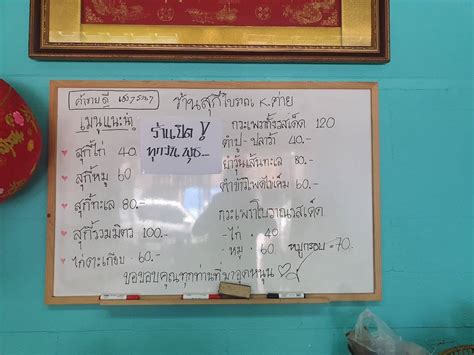 ร้านสุกี้โบราณ K.ต่าย
เมนูแนะนำ
ร้านปิด !
ทุกวันพุธ...
สุกี้ไก่ 40
สุกี้หมู 60
สุกี้ทะเล 80.-
สุกี้รวมมิตร 100.-
ไก่ตะเกียบ 60.-
กะเพราถั่วรสเด็ด 120
ตำปู-ปลาร้า 40.-
ยำวุ้นเส้นทะเล 80.-
ตำข้าวโพดไข่เค็ม 60.-
กะเพราโบราณรสเด็ด
-ไก่ . 40
-หมู . 60
หมูกรอบ = 70.
ขอขอบคุณทุกท่านที่มาอุดหนุน